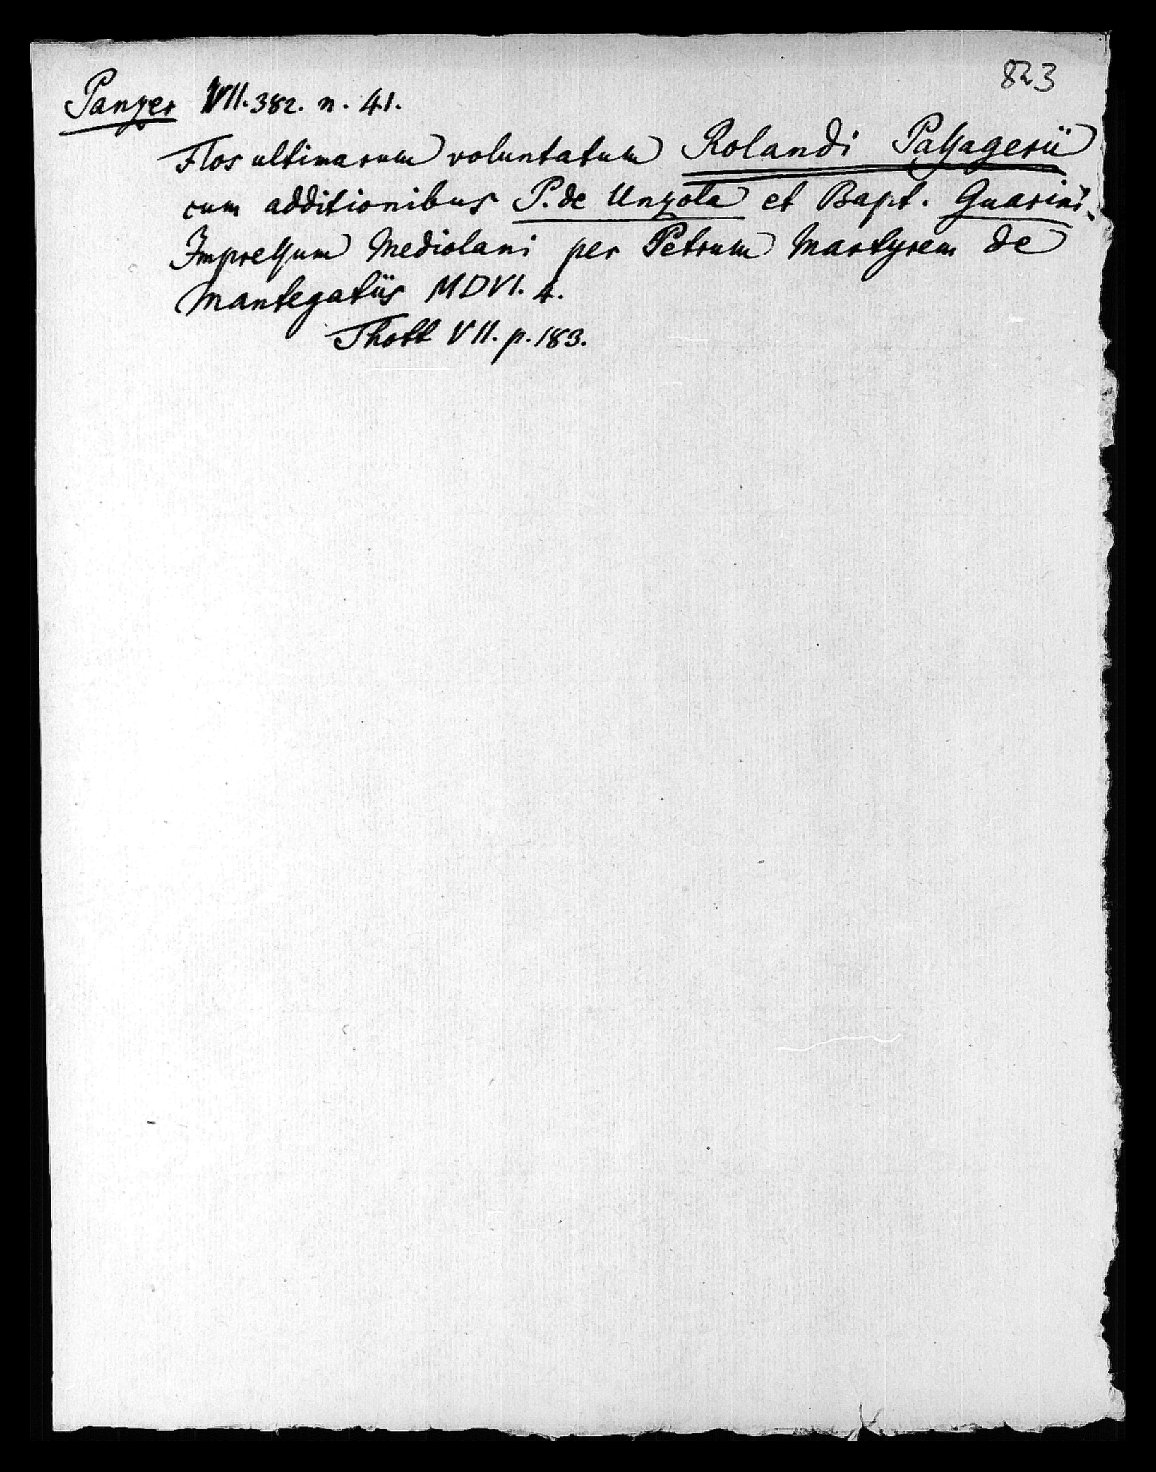 823
Panzer VII. 382. n. 41.
Flos ultimarum voluntatum Rolandi Passagerii
cum additionibus P. de Unzola et Bapt. Guarini.
Impressum Mediolani per Petrum Martyrem de
Mantegatiis MDVI. 4.
Thott VII. p. 183.